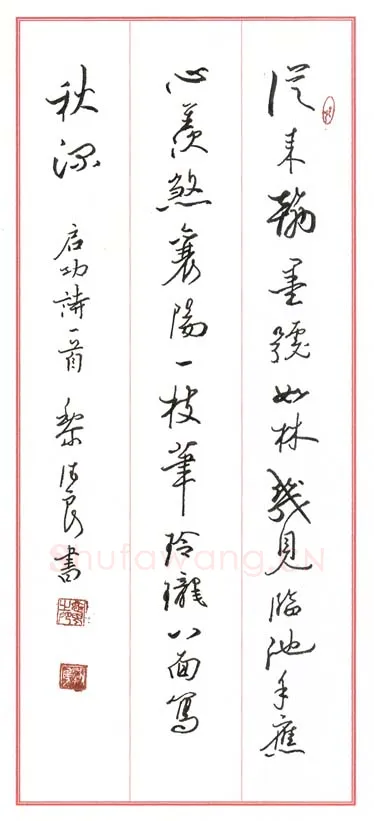 從來翰墨號如林幾見臨池手應
心羨煞襄陽一枝筆玲瓏八面寫
秋深
启功詩一首
書
Shufawang.CN